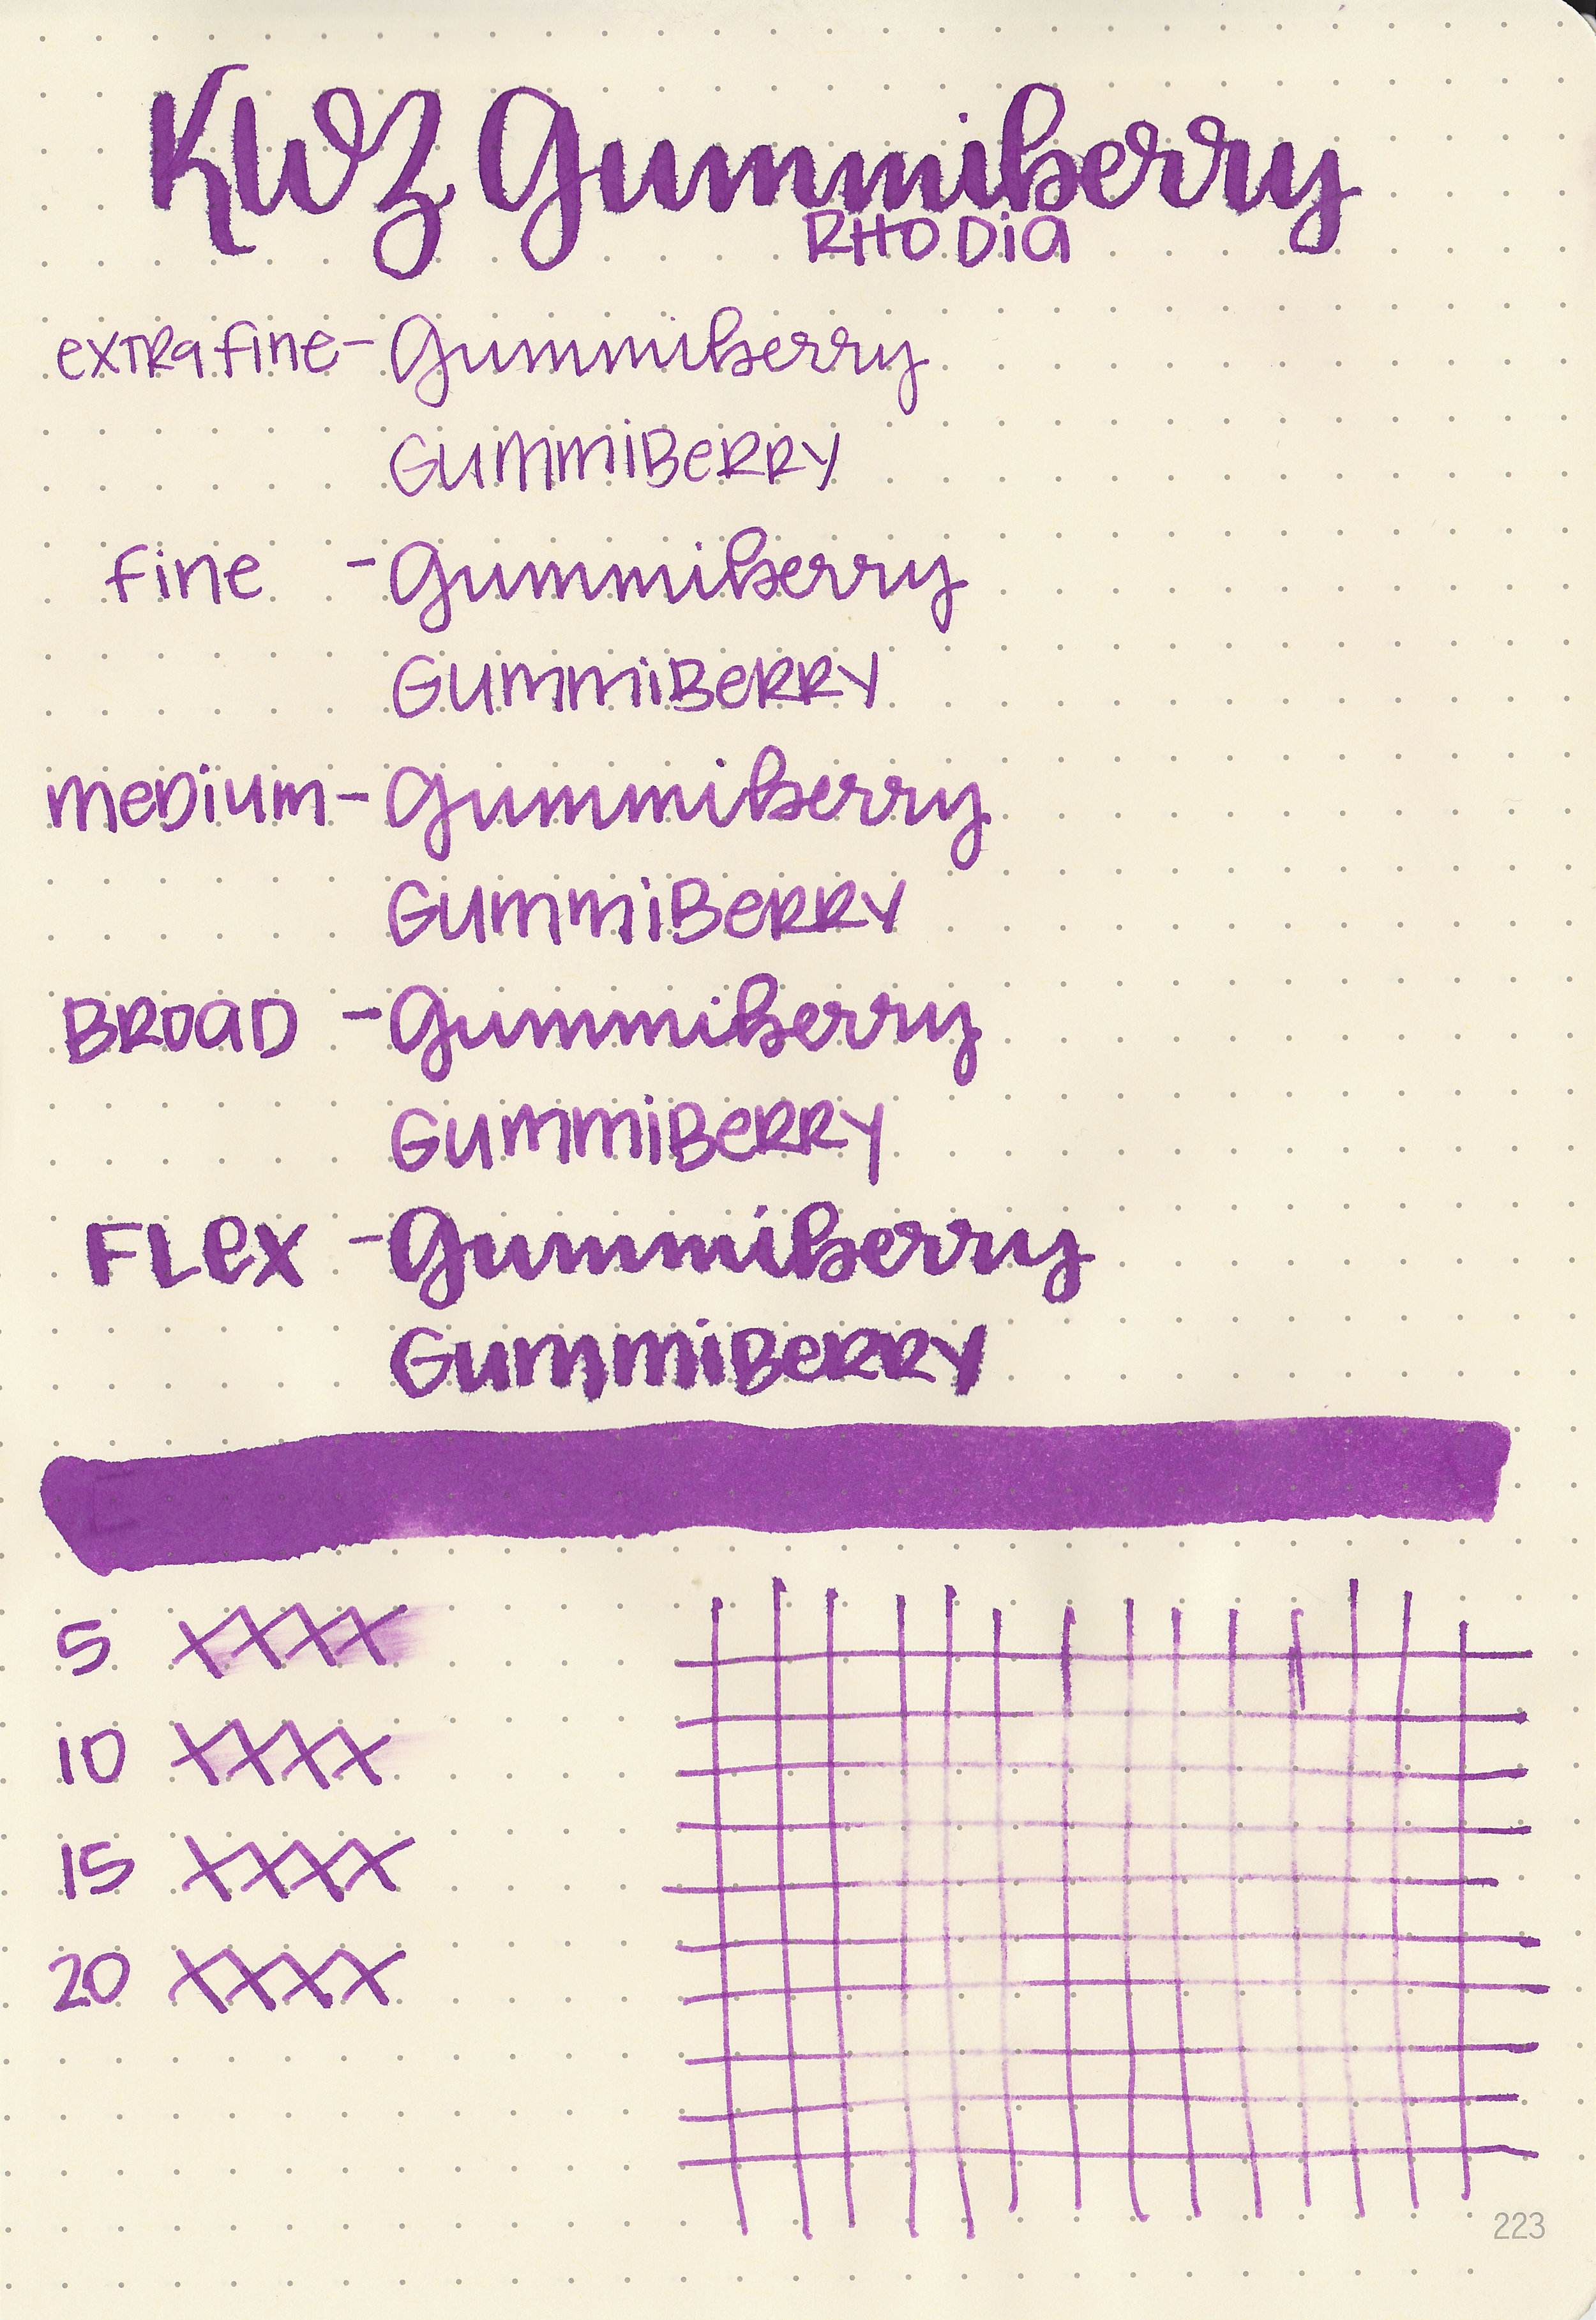 KWZ Gummiberry
RHODIA
extra fine - Gummiberry
GummiBerry
fine - Gummiberry
GummiBerry
meDium - Gummiberry
GummiBerry
BROAD - Gummiberry
GummiBerry
FLex - Gummiberry
GummiBerry
5 XXXX
10 XXXX
15 XXXX
20 XXXX
223